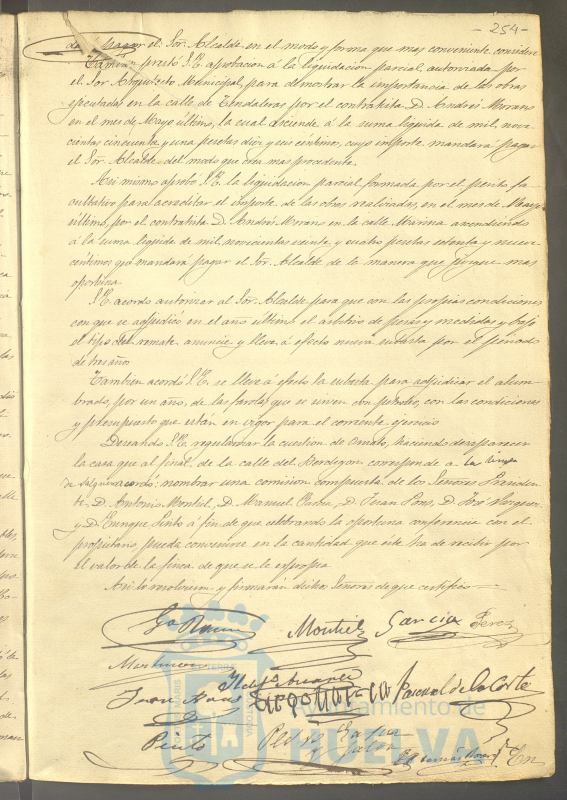 - 254 -
dará pagar el Sor. Alcalde en el modo y forma que mas conveniente considere
Tambien prestó S.E. aprobacion á la liquidacion parcial, autorizada por
el Sor Arquitecto Municipal, para demostrar la importancia de las obras
ejecutadas en la calle de Tendaleras por el contratista D. Andrés Morano
en el mes de Mayo último, la cual asciende á la suma liquida de mil nove
cientas cincuenta y una pesetas diez y seis céntimos, cuyo importe mandará pagar
el Sor. Alcalde del modo que crea mas procedente.
Asi mismo aprobó S.E. la liquidacion parcial formada por el perito fa
cultativo para acreditar el importe de las obras realizadas, en el mes de Mayo
último, por el contratista D. Andrés Morano en la calle Marina ascendiendo
á la suma liquida de mil novecientas y cuatro pesetas setenta y nueve
céntimos, que mandará pagar el Sor. Alcalde de la manera que juzgue mas
oportuna.
S.E. acordó autorizar al Sor. Alcalde para que con las propias condiciones
con que se adjudicó en el año último el arbitrio de pesas y medidas y bajo
el tipo del remate anuncie y lleve á efecto nueva subasta por el periodo
de tres años
Tambien acordó S.E. se lleve á efecto la subasta para adjudicar el alum-
brado, por un año, de las farolas que se sirven con petroleo, con las condiciones
y presupuesto que están en vigor para el corriente ejercicio
Deseando S.E. regularizar la cuestion de Ornato, haciendo desaparecer
la casa que al final de la calle del corresponde a la
de acordó: nombrar una comision compuesta de los Señores Presiden
te, D. Antonio Montiel, D. Manuel D. Juan Pons, D. José
y D. Enrique Pinto á fin de que celebrando la oportuna conferencia con el
propietario, pueda convenirse en la cantidad que éste ha de recibir por
el valor de la finca de que se le expropia
Asi lo resolvieron y firmarán dichos Señores de que certifico
Montiel Garcia Perez
Juan Pons Diego Garcia Pascual de la Corte
Pinto Pedro
Ayuntamiento de
HUELVA